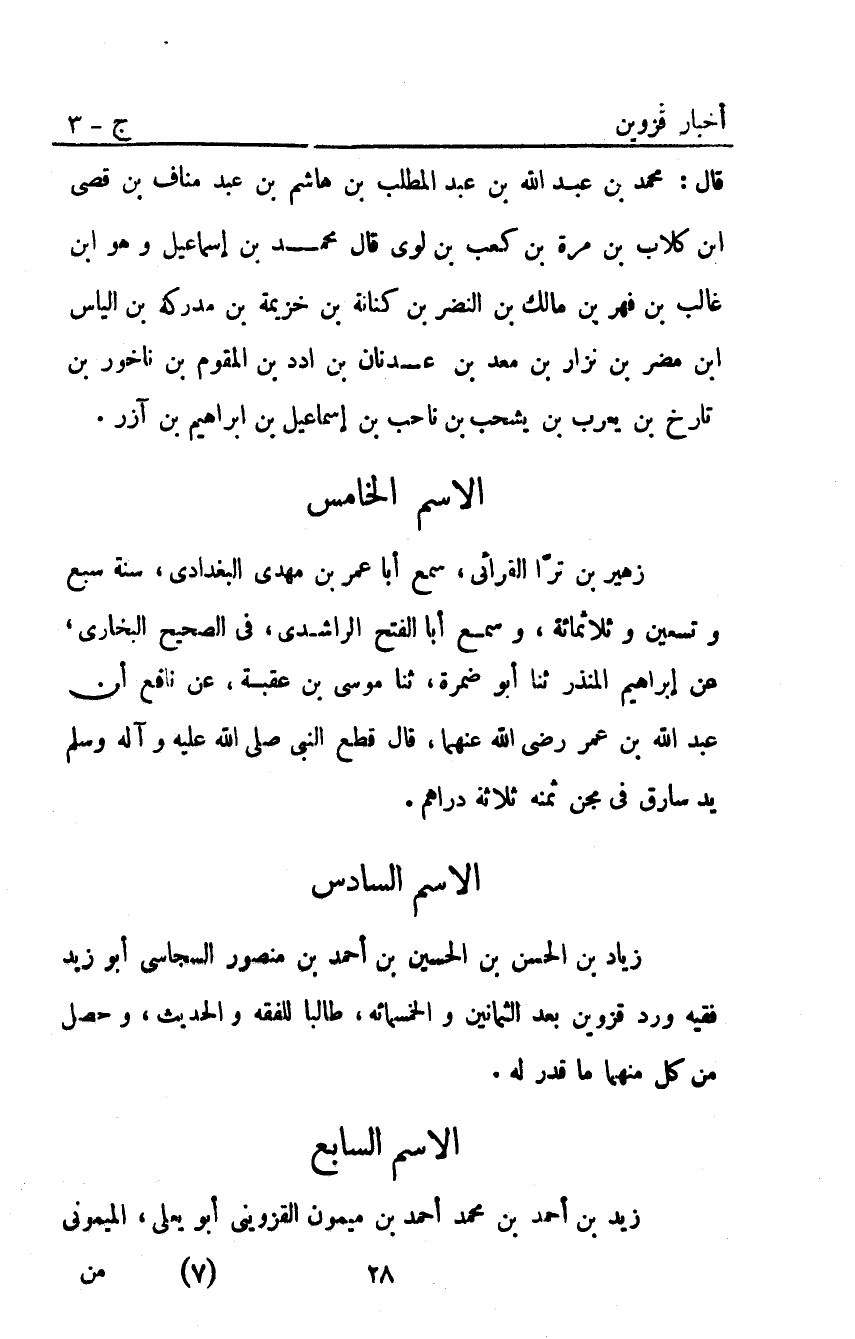 أخبار قزوين ج - ٣
قال : محمد بن عبد الله بن عبد المطلب بن هاشم بن عبد مناف بن قصى
ابن كلاب بن مرة بن كعب بن لوى قال محمد بن إسماعيل و هو ابن
غالب بن فهر بن مالك بن النضر بن كنانة بن خزيمة بن مدركة بن الياس
ابن مضر بن نزار بن معد بن عدنان بن ادد بن المقوم بن ناخور بن
تارخ بن يعرب بن يشحب بن ناحب بن إسماعيل بن ابراهيم بن آزر .
الاسم الخامس
زهير بن ترّا القرائى ، سمع أبا عمر بن مهدى البغدادى ، سنة سبع
و تسعين و ثلاثمائة ، و سمع أبا الفتح الراشدى ، فى الصحيح البخارى ،
عن إبراهيم المنذر ثنا أبو ضمرة ، ثنا موسى بن عقبة ، عن نافع أن
عبد الله بن عمر رضى الله عنهما ، قال قطع النبى صلى الله عليه و آله وسلم
يد سارق فى مجن ثمنه ثلاثة دراهم .
الاسم السادس
زياد بن الحسن بن الحسين بن أحمد بن منصور السجاسى أبو زيد
فقيه ورد قزوين بعد الثمانين و الخمسائه ، طالبا للفقه و الحديث ، و حصل
من كل منهما ما قدر له .
الاسم السابع
زيد بن أحمد بن محمد أحمد بن ميمون القزوينى أبو يعلى ، الميمونى
٢٨ (٧) من